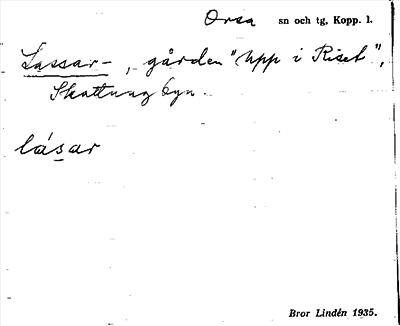 Orsa sn och tg, Kopp. l.
Lassar-, gården "Upp i Riset",
Skattungbyn.
låsar
Bror Lindén 1935.